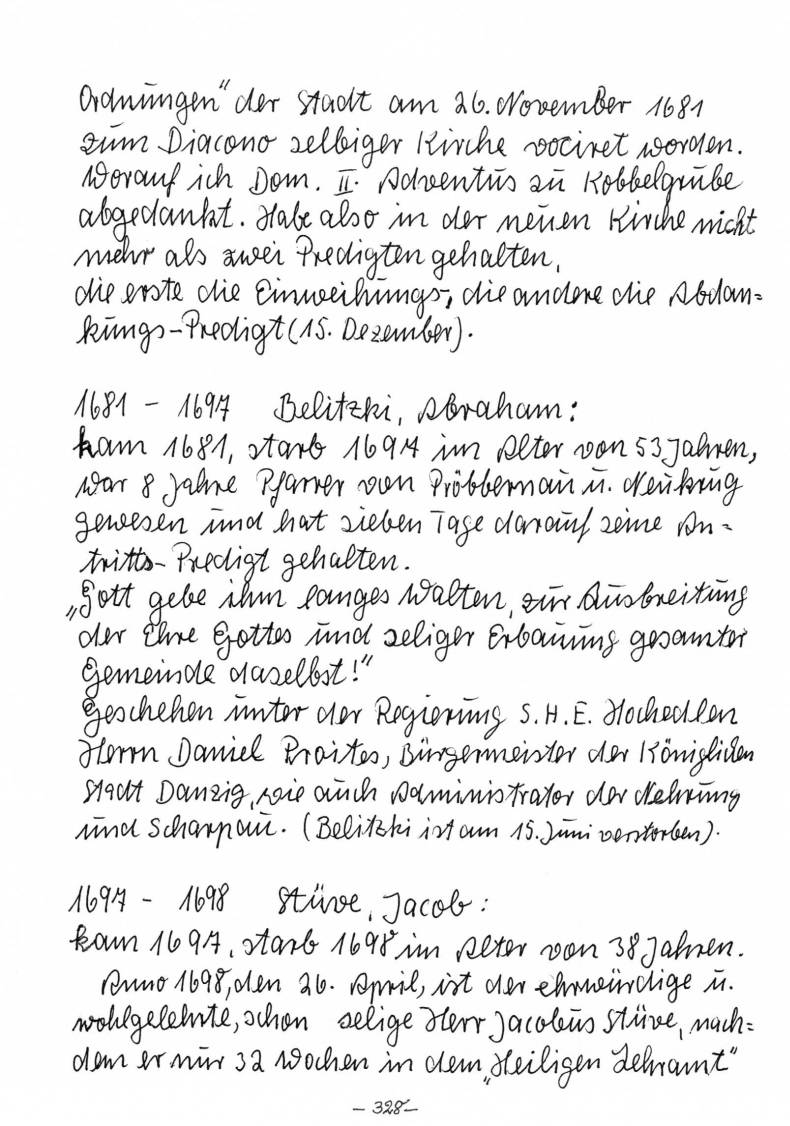 Ordnungen" der Stadt am 26. November 1681
zum Diacono selbiger Kirche vociret worden.
Worauf ich Dom. II. Adventus zu Kobbelgrube
abgedankt. Habe also in der neuen Kirche nicht
mehr als zwei Predigten gehalten,
die erste die Einweihungs-, die andere die Abdan=
kungs-Predigt (15. Dezember).
1681 - 1697 Belitzki, Abraham:
kam 1681, starb 1697 im Alter von 53 Jahren,
war 8 Jahre Pfarrer von Pröbbernau u. Neukrug
gewesen und hat sieben Tage darauf seine An=
tritts-Predigt gehalten.
„Gott gebe ihm langes Walten, zur Ausbreitung
der Ehre Gottes und seliger Erbauung gesamter
Gemeinde daselbst!"
Geschehen unter der Regierung S.H.E. Hochedlen
Herrn Daniel Proites, Bürgermeister der Königlichen
Stadt Danzig, wie auch Administrator der Nehrung
und Scharpau. (Belitzki ist am 15. Juni verstorben).
1697 - 1698 Stüve, Jacob:
kam 1697, starb 1698 im Alter von 38 Jahren.
Anno 1698, den 26. April, ist der ehrwürdige u.
wohlgelehrte, schon selige Herr Jacobus Stüve, nach=
dem er nur 32 Wochen in dem „Heiligen Lehramt"
- 328 -